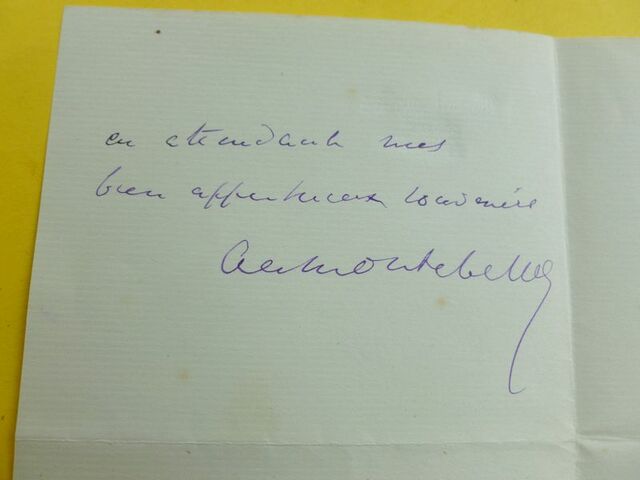 en attendant mes
bien affectueux souvenirs
de Montebello